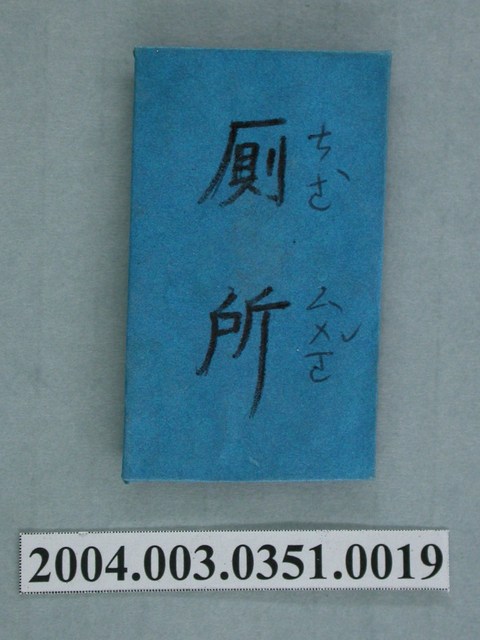 厠所
ㄘㄜˋ ㄙㄨㄛˇ
2004.003.0351.0019